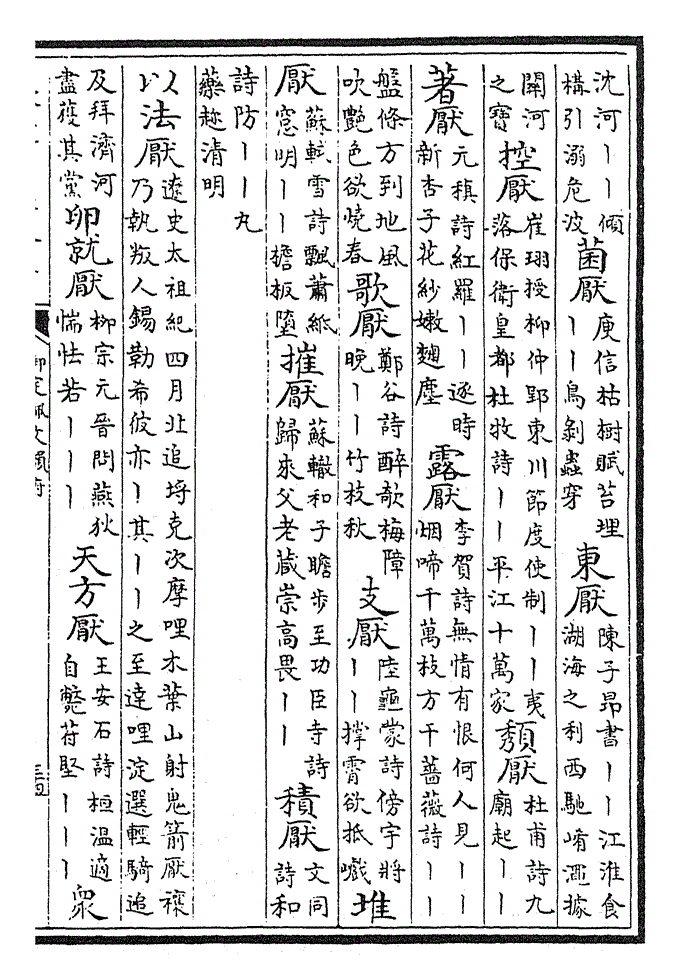 沈河丨丨傾
構引溺危波
菌厭
庾信枯樹賦苔埋
丨丨鳥剝蟲穿
東厭
陳子昂書丨丨江淮食
湖海之利西馳崤澠據
關河
之寶
控厭
崔珝授柳仲郢東川節度使制丨丨夷
落保衛皇都杜牧詩丨丨平江十萬家
頽厭
杜甫詩九
廟起丨丨
著厭
元稹詩紅羅丨丨逐時
新杏子花紗嫩麴塵
露厭
李賀詩無情有恨何人見丨丨
烟啼千萬枝方干薔薇詩丨丨
盤條方到地風
吹艷色欲燒春
歌厭
鄭谷詩醉欹梅障
晚丨丨竹枝秋
支厭
陸龜蒙詩傍宇將
丨丨撑霄欲抵巇
堆
厭
蘇軾雪詩飄蕭紙
窓明丨丨檐板墮
摧厭
蘇轍和子瞻步至功臣寺詩
歸來父老藏崇高畏丨丨
積厭
文同
詩和
詩防丨丨丸
藥趂清明
以法厭
遼史太祖紀四月北追捋克次摩哩木葉山射鬼箭厭禳
乃執叛人錫勒希攸亦丨其丨丨之至達哩淀選輕騎追
及拜濟河
盡獲其黨
卵就厭
柳宗元晉問燕狄
惴怯若丨丨丨
天方厭
王安石詩桓温適
自斃苻堅丨丨丨
衆
御定佩文韻府